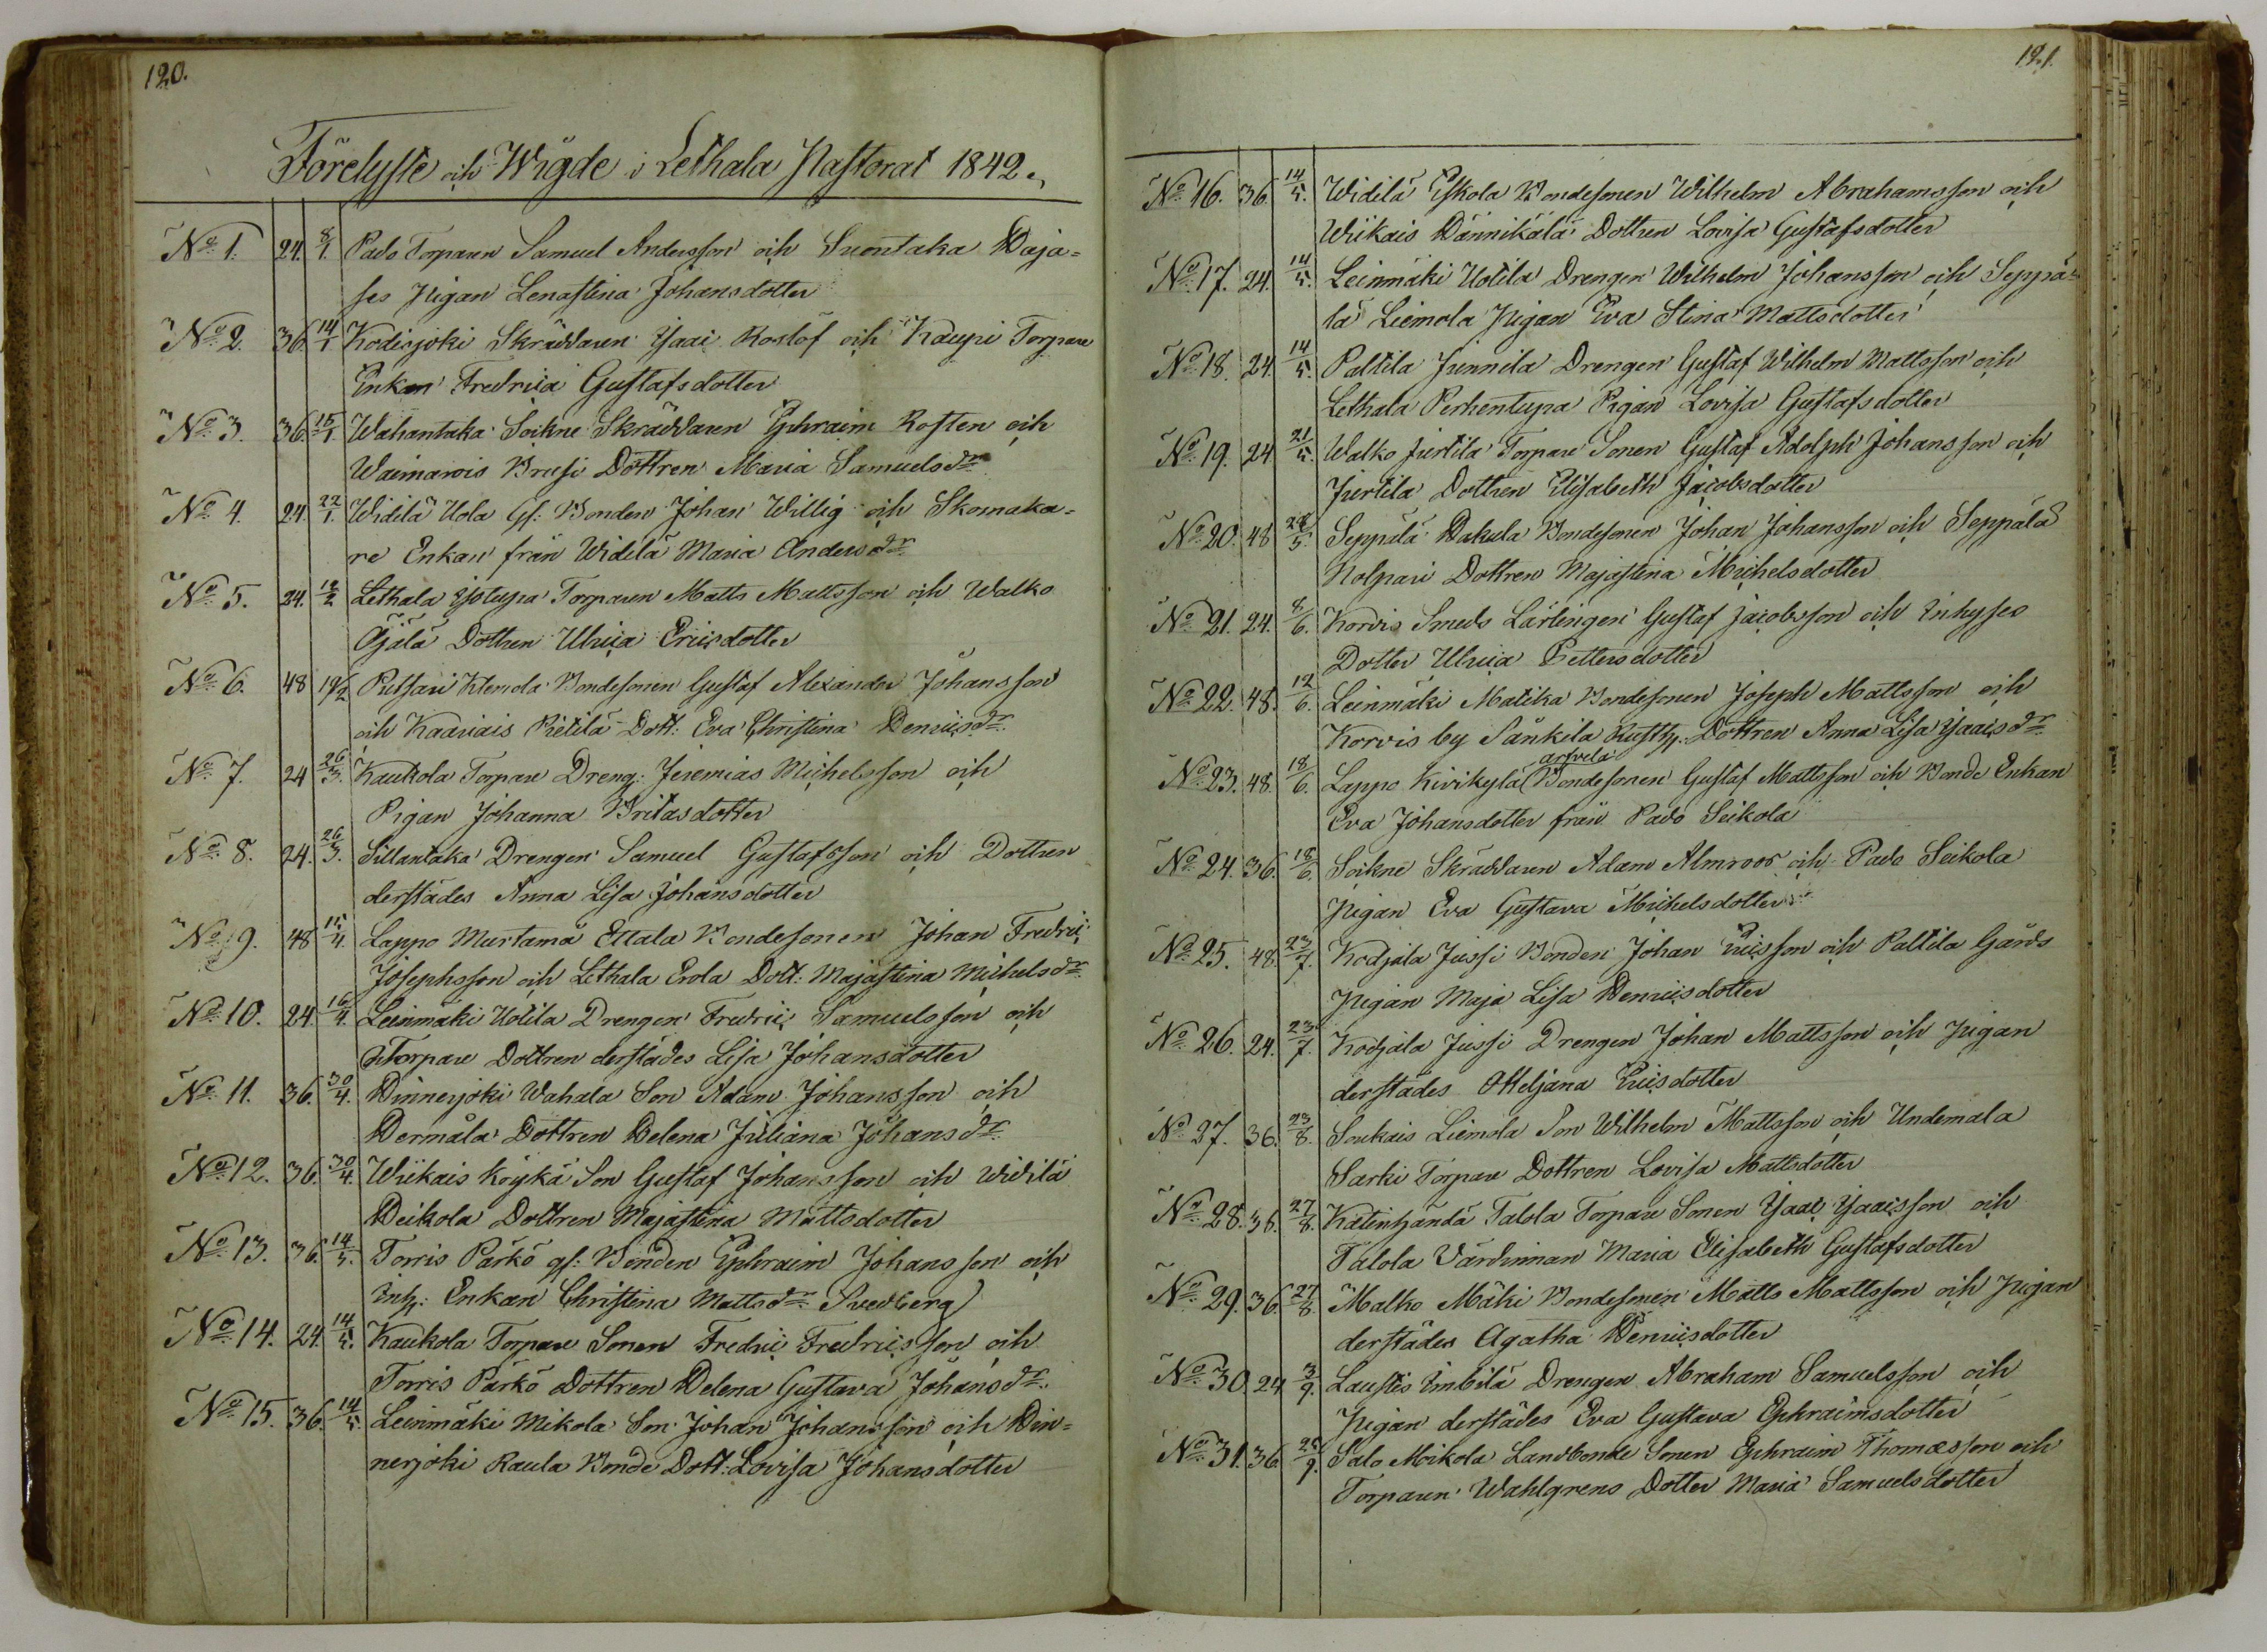 120.
Förelyste och Wigde i Lethala Pastorat 1842.
No 1. 24. 8/1. Pado Torparen Samuel Andersson och Suontaka Haja-
ses Pigan Lenastina Johansdotter
No 2. 36. 14/1 Kodisjoki Skräddaren Isaac Roslöf och Kaupi Torpare
Enkan Fredrica Gustafsdotter
No 3. 36. 15/1 Wahantaka Soikne Skräddaren Ephraim Rosten och
Waimarois Brusi Dottren Maria Samuelsdr
No 4. 24. 22/1. Widilä Uola Gl: Bonden Johan Willig och Skomaka-
re Enkan från Widilä Maria Andersdr
No 5. 24. 12/2 Lethala Ylitupa Torparen Matts Mattsson och Walko
Ojala Dottren Ulrica Ericsdotter
No 6. 48 19/2 Putsari Klemola Bondesonen Gustaf Alexander Johansson
och Kaariais Pietilä Dott: Eva Christina Henricsdr.
No 7. 24 26/3. Kaukola Torpare Dreng: Jeremias Michelsson och
Pigan Johanna Britasdotter
No 8. 24. 26/3. Sillantaka Drengen Samuel Gustafsson och Dottren
derstädes Anna Lisa Johansdotter
No 9. 48 15/4. Lappo Murtama Ettala Bondesonen Johan Fredric
Josephsson och Lethala Erola Dott: Majastina Michelsdr
No 10. 24 16/4. Leinmäki Uotila Drengen Fredric Samuelsson och
Torpare Dottren derstädes Lisa Johansdotter
No 11. 36. 30/4. Hinnerjoki Wahala Son Adam Johansson och
Hermäla Dottren Helena Juliana Johansdr.
No 12. 36. 30/4. Wiikais Köykä Son Gustaf Johansson och Widilä
Heikola Dottren Majastina Mattsdotter
No 13. 36. 14/5. Torris Parko gl: Bonden Ephraim Johansson och
Inh: Enkan Christina Mattsdr Svedberg
No 14. 24. 14/5. Kaukola Torpare Sonen Fredric Fredricsson och
Torris Parko Dottren Helena Gustava Johansdr.
No 15. 36. 14/5. Leinmäki Mikola Son Johan Johansson och Hin-
nerjoki Raula Bonde Dott: Lovisa Johansdotter
121.
No 16. 36. 14/5. Widilä Eskola Bondesonen Wilhelm Abrahamsson och
Wiikais Hännikälä Dottren Lovisa Gustafsdotter
No 17. 24. 14/5. Leinmäki Uotila Drengen Wilhelm Johansson och Seppä-
lä Liemola Pigan Eva Stina Mattsdotter
No 18. 24. 14/5. Paltila Junnila Drengen Gustaf Wilhelm Mattsson och
Lethala Perhentupa Pigan Lovisa Gustafsdotter
No 19. 24 21/5. Walko Juertila Torpare Sonen Gustaf Adolph Johansson och
Juertila Dottren Elisabeth Jacobsdotter
No 20. 48 28/5. Seppälä Hakula Bondesonen Johan Johansson och Seppälä
Kolpari Dottren Majastina Michelsdotter
No 21. 24. 8/6. Korvis Smeds Lärlingen Gustaf Jacobsson och Inhyses
Dotter Ulrica Pettersdotter
No 22. 48. 12/6. Leinmäki Matika Bondesonen Joseph Mattsson och
Korvis by Sänkilä Rusth. Dottren Anna Lisa Isaacsdr
No 23. 48. 18/6. Lappo Kivikylä Arfvela Bondesonen Gustaf Mattsson och Bonde Enkan
Eva Johansdotter från Pado Seikola
No 24. 36. 18/6. Soikne Skräddaren Adam Almroos och Pado Seikola
Pigan Eva Gustava Michelsdotter
No 25. 48. 23/7. Kodjala Jussi Bonden Johan Ericsson och Paltila Gårds
Pigan Maja Lisa Henricsdotter
No 26. 24. 23/7. Kodjala Jussi Drengen Johan Mattsson och Pigan
derstädes Otteljana Ericsdotter
No 27. 36. 23/8. Soukais Liemola Son Wilhelm Mattsson och Undemala
Sarki Torpare Dottren Lovisa Mattsdotter
No 28. 36. 27/8. Katinhändä Talola Torpare Sonen Isaac Isaacsson och
Talola Värdinnan Maria Elisabeth Gustafsdotter
No 29. 36. 27/8. Malko Mäki Bondesonen Matts Mattsson och Pigan
derstädes Agatha Henricsdotter
No 30. 24. 3/9. Laustis Imbilä Drengen Abraham Samuelsson och
Pigan derstädes Eva Gustava Ephraimsdotter
No 31. 36. 25/9. Salo Mikola Landbonde Sonen Ephraim Thomasson och
Torparen Wahlgrens Dotter Maria Samuelsdotter